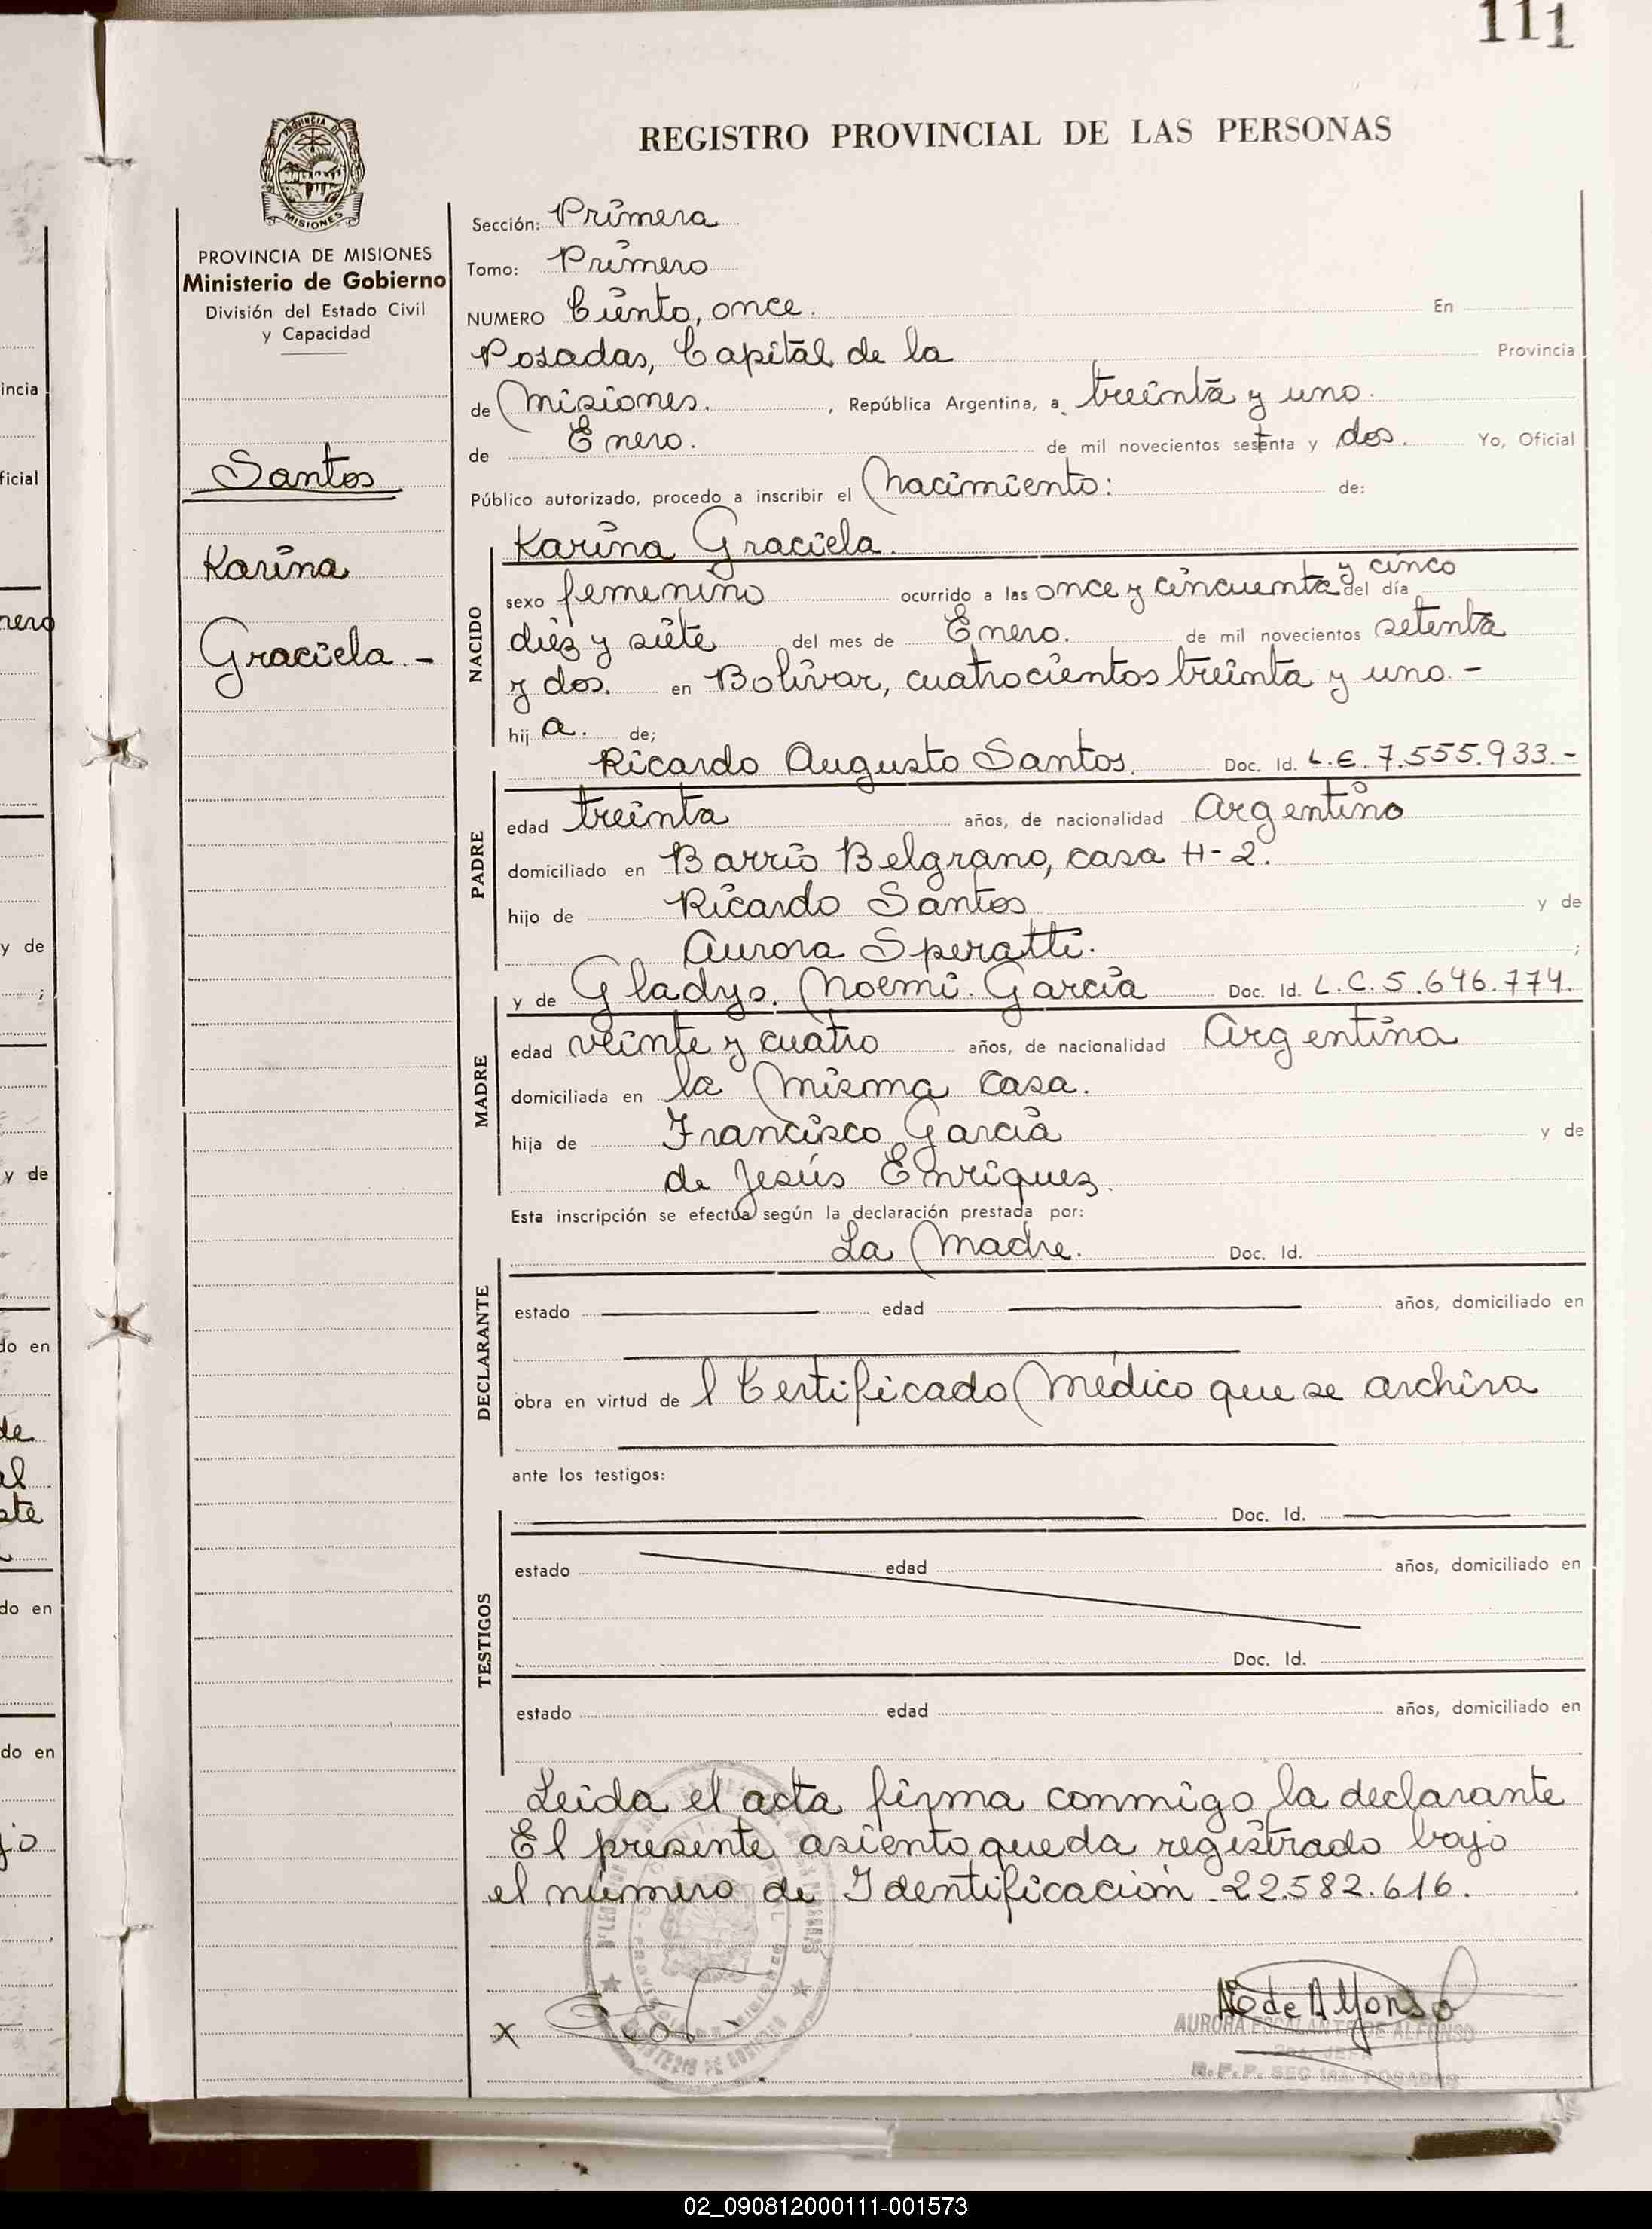 111
REGISTRO PROVINCIAL DE LAS PERSONAS
PROVINCIA DE
MISIONES
PROVINCIA DE MISIONES
Ministerio de Gobierno
División del Estado Civil
y Capacidad
Santos
Karina
Graciela.-
Sección: Primera
Tomo: Primero
NUMERO Ciento, once. En
Posadas, Capital de la Provincia
de Misiones. , República Argentina, a treinta y uno.
de Enero. de mil novecientos setenta y dos. Yo, Oficial
Público autorizado, procedo a inscribir el Nacimiento: de:
Karina Graciela.
NACIDO
y cinco
sexo femenino ocurrido a las once y cincuenta del día
diéz y siéte del mes de Enero. de mil novecientos setenta
y dos. en Bolívar, cuatrocientos treinta y uno.-
hij a. de;
Ricardo Augusto Santos. Doc. Id. L.E. 7.555.933.-
PADRE
edad treinta años, de nacionalidad Argentino
domiciliado en Barrio Belgrano, casa H-2.
hijo de Ricardo Santos y de
Aurora Speratti. ;
y de Gladys. Noemí. García Doc. Id. L.C. 5.646.774.
MADRE
edad veinte y cuatro años, de nacionalidad Argentina
domiciliada en la Misma casa.
hija de Francisco García y de
de Jesús Enriquez.
Esta inscripción se efectúa según la declaración prestada por:
La Madre. Doc. Id.
DECLARANTE
estado edad años, domiciliado en
obra en virtud de l Certificado Médico que se archiva
ante los testigos:
Doc. Id.
TESTIGOS
estado edad años, domiciliado en
Doc. Id.
estado edad años, domiciliado en
Leida el acta firma conmigo la declarante
El presente asiento queda registrado bajo
el número de Identificación 22.582.616.
x
AE de Alfonso
AURORA ESCALANTE DE ALFONSO
2da. JEFA
R.P.P. SEC 1ra. POSADAS
incia
ficial
nero
y de
;
y de
do en
de
al
ste
do en
do en
jo
02_090812000111-001573